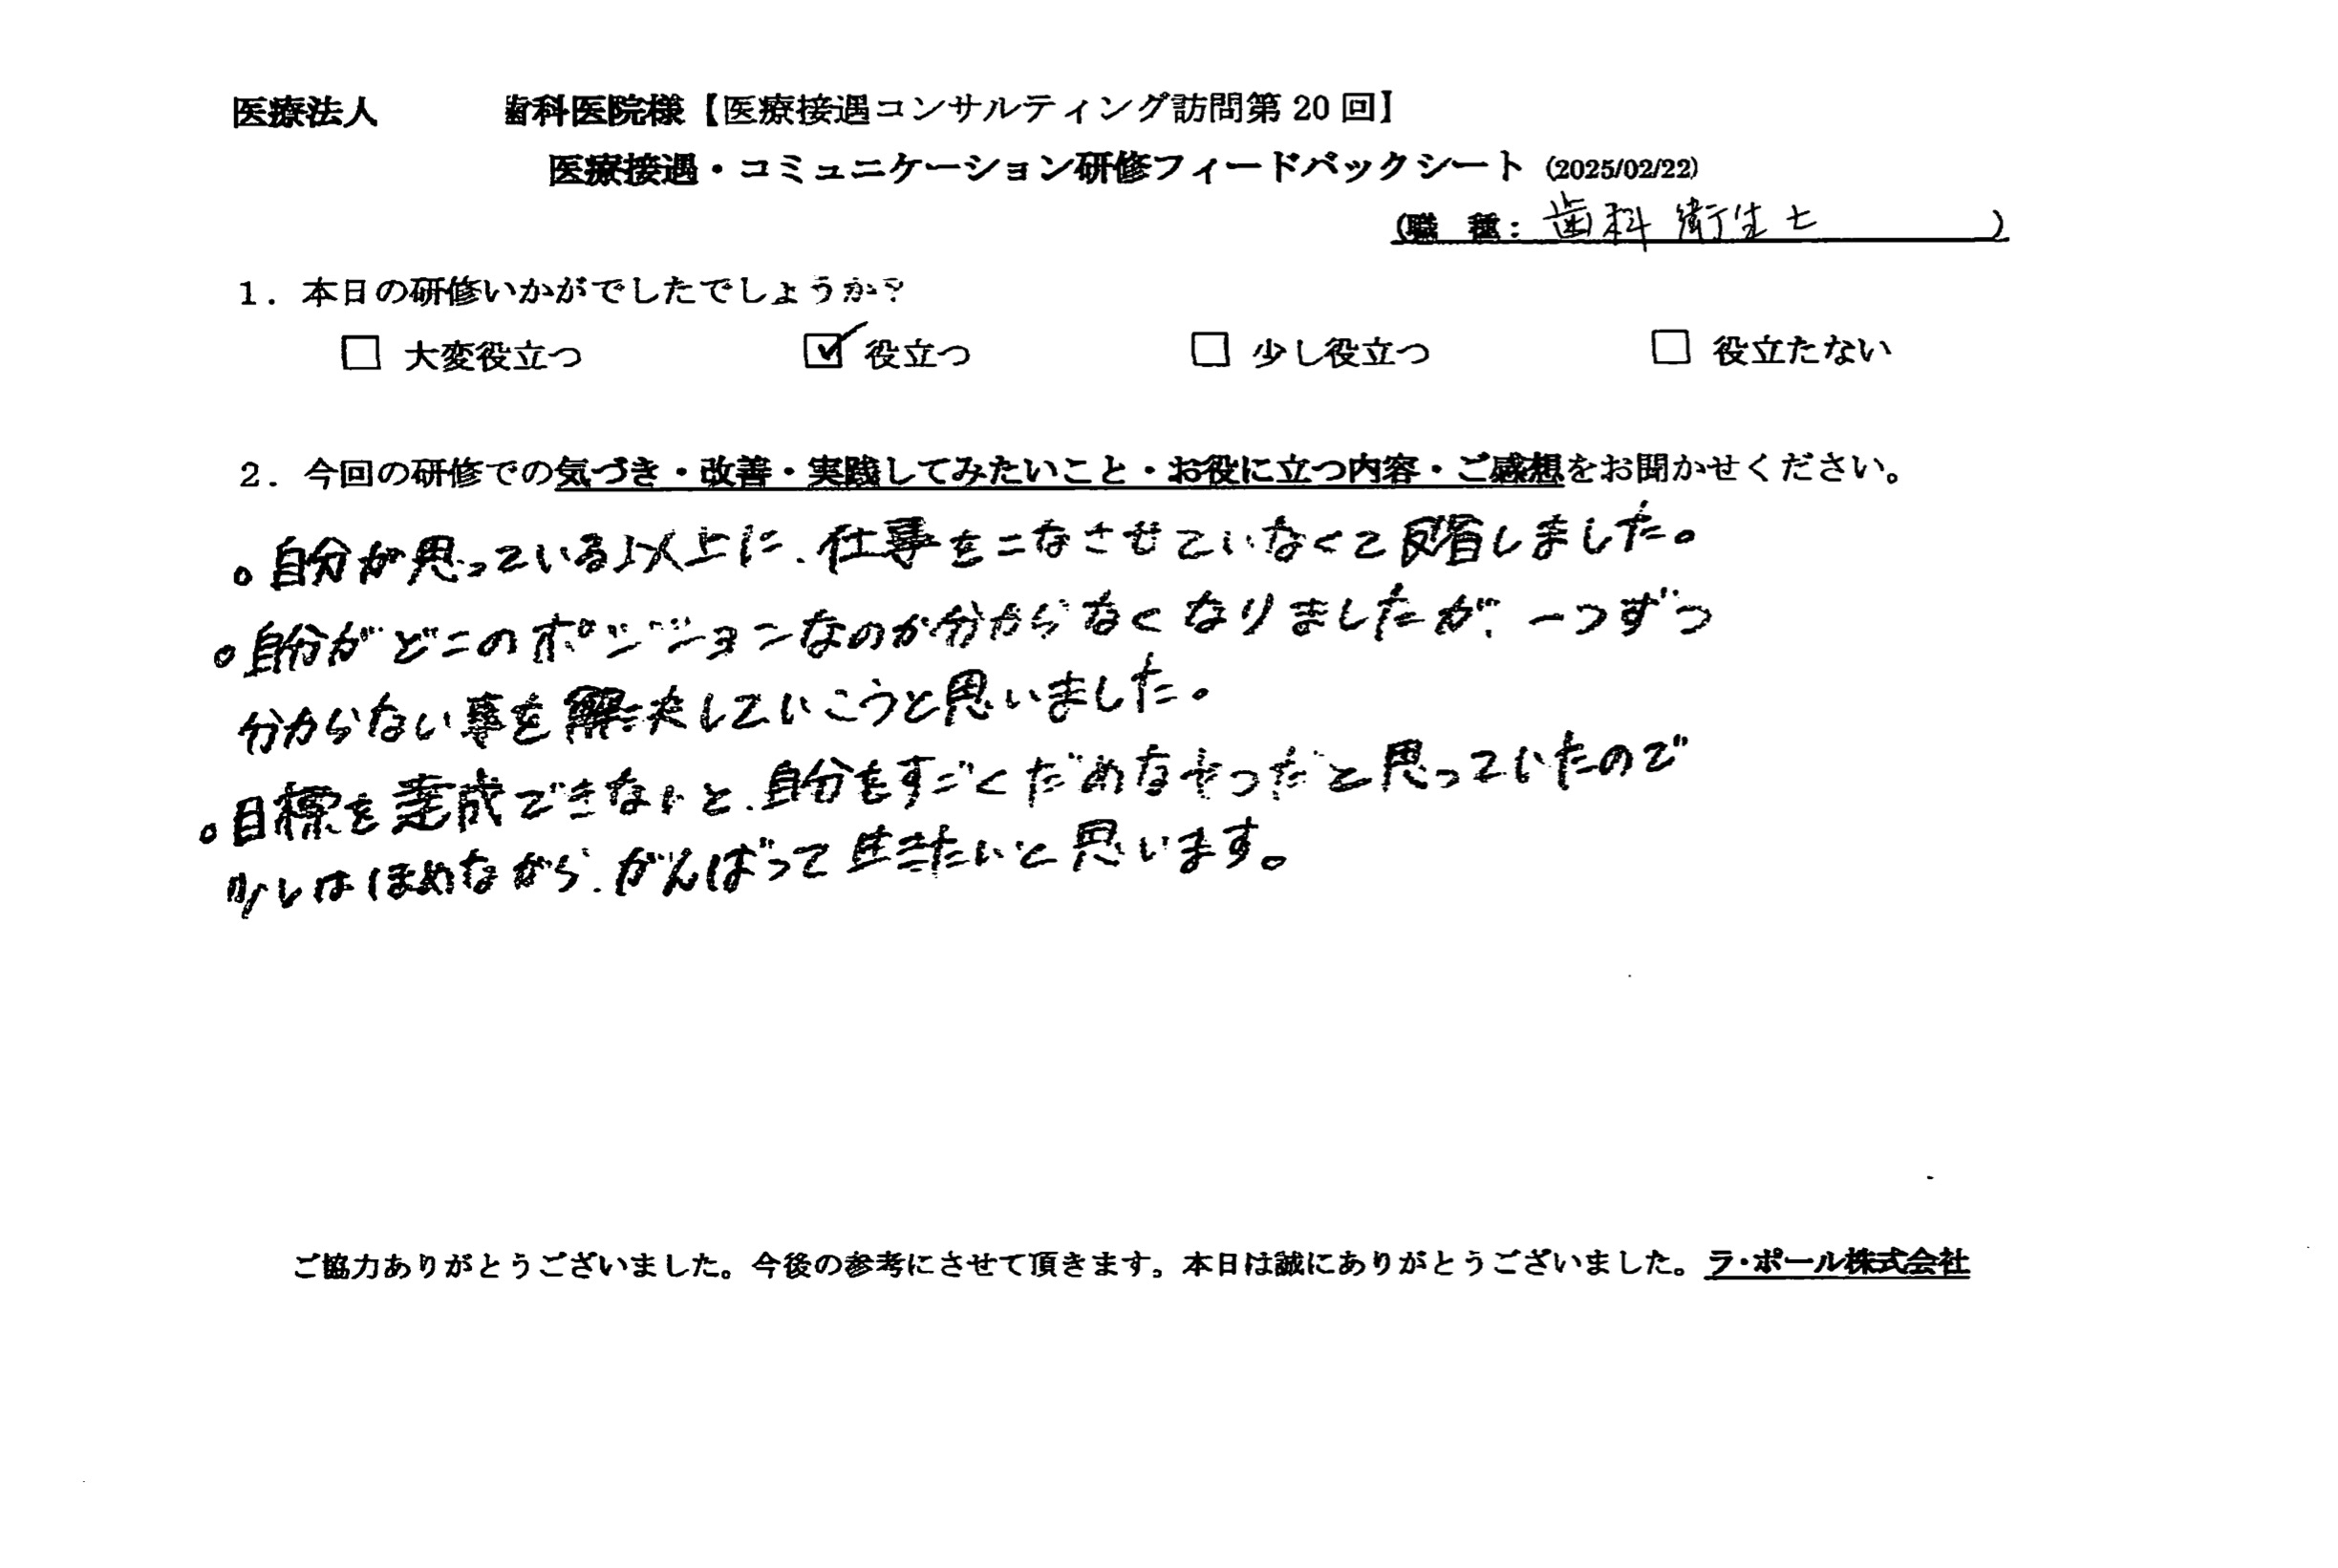 医療法人 歯科医院様【医療接遇コンサルティング訪問第 20 回】
医療接遇・コミュニケーション研修フィードバックシート (2025/02/22)
(職 種: 歯科衛生士 )
1. 本日の研修いかがでしたでしょうか?
□ 大変役立つ ☑ 役立つ □ 少し役立つ □ 役立たない
2. 今回の研修での気づき・改善・実践してみたいこと・お役に立つ内容・ご感想をお聞かせください。
。自分が思っている以上に、仕事をこなさせていなくて反省しました。
。自分がどこのポジションなのか分からなくなりましたが、一つずつ
分からない事を解決していこうと思いました。
。目標を達成できないと、自分もすごくだめなやつだと思っていたので
少しはほめながら、がんばって生きたいと思います。
ご協力ありがとうございました。今後の参考にさせて頂きます。本日は誠にありがとうございました。ラ・ポール株式会社